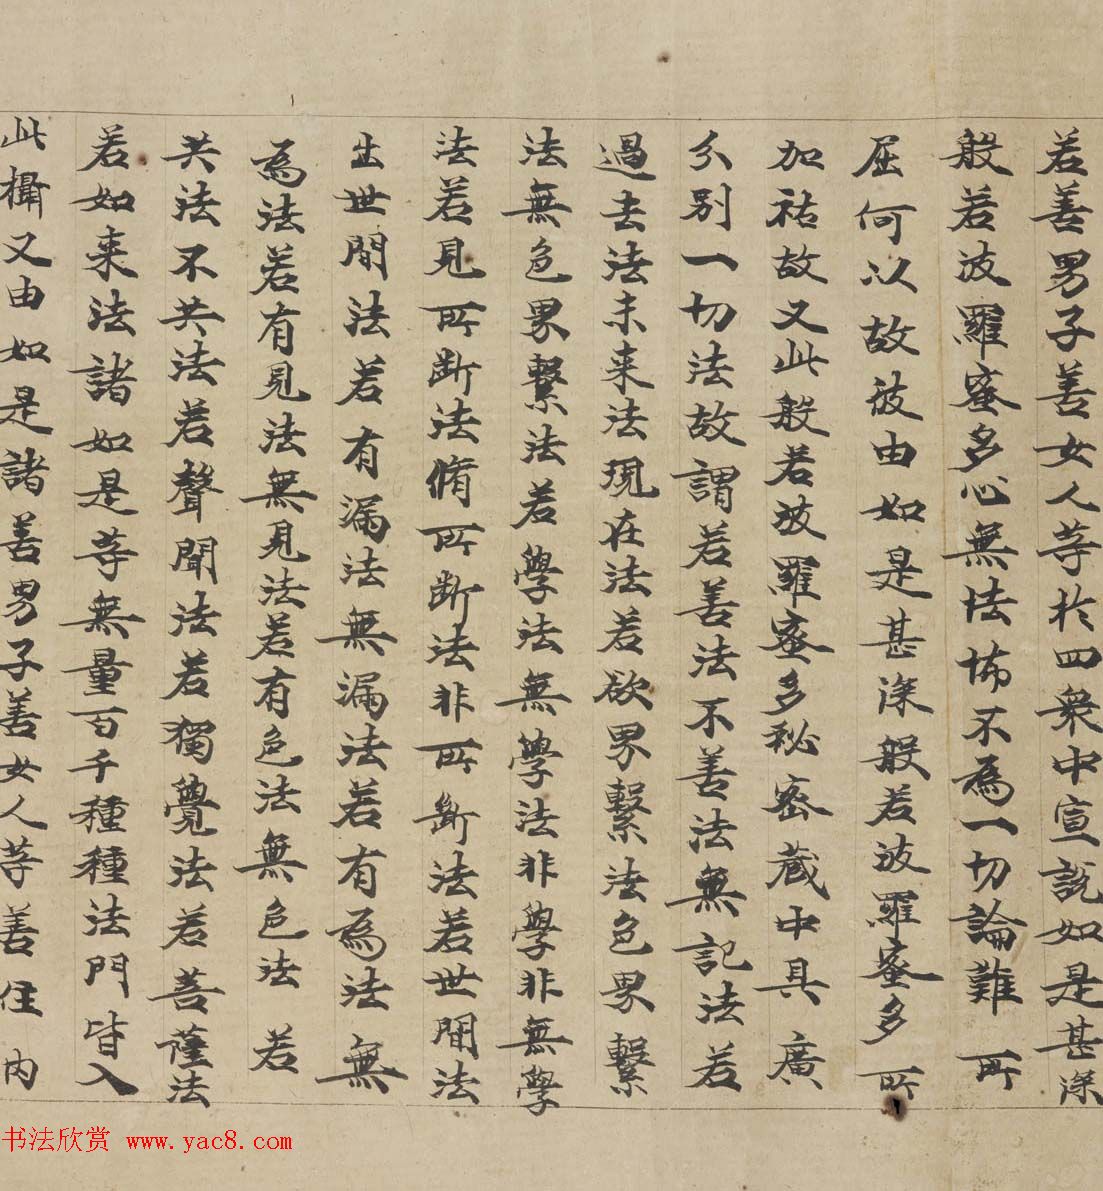 若善男子善女人等於四衆中宣說如是甚深
般若波羅蜜多心無怯怖不為一切論難所
屈何以故彼由如是甚深般若波羅蜜多所
加祐故又此般若波羅蜜多秘密藏中具廣
分別一切法故謂若善法不善法無記法若
過去法未来法現在法若欲界繫法色界繫
法無色界繫法若學法無學法非學非無學
法若見所斷法脩所斷法非所斷法若世間法
出世間法若有漏法無漏法若有為法無
為法若有見法無見法若有色法無色法若
共法不共法若聲聞法若獨覺法若菩薩法
若如来法諸如是等無量百千種種法門皆入
此攝又由如是諸善男子善女人等善住内
书法欣赏 www.yac8.com